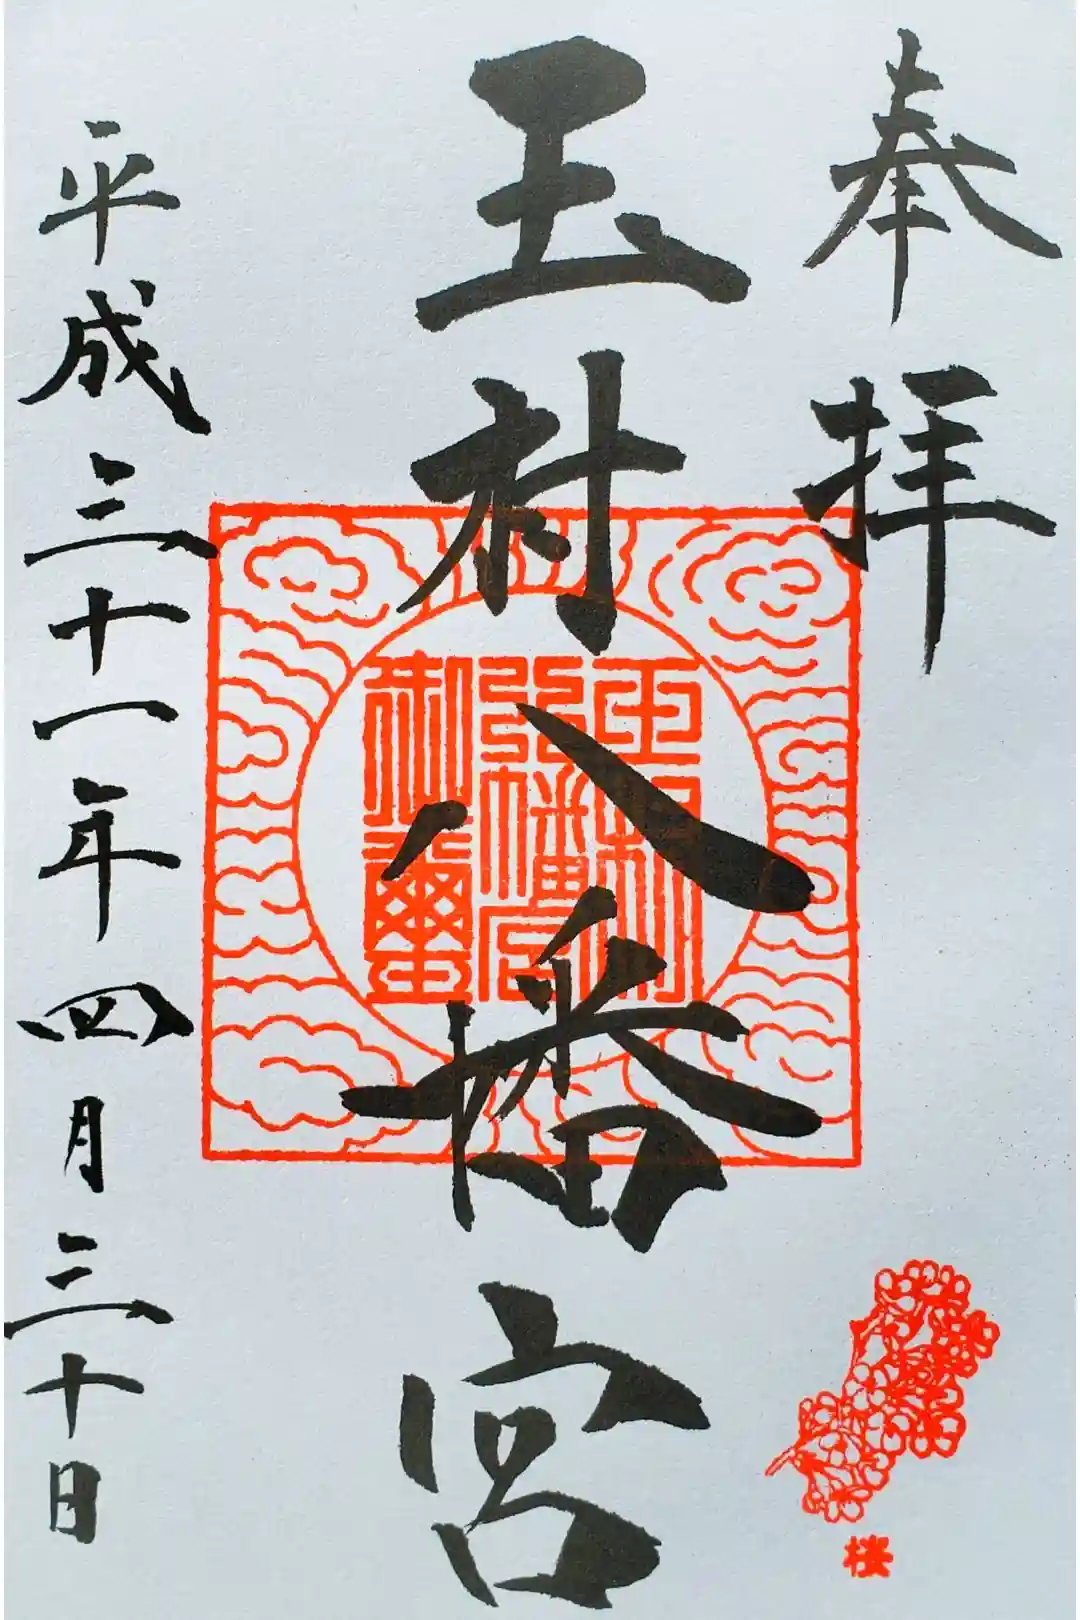 奉拝
玉村八幡宮
玉村
八幡宮
御璽
平成三十一年四月三十日
桜